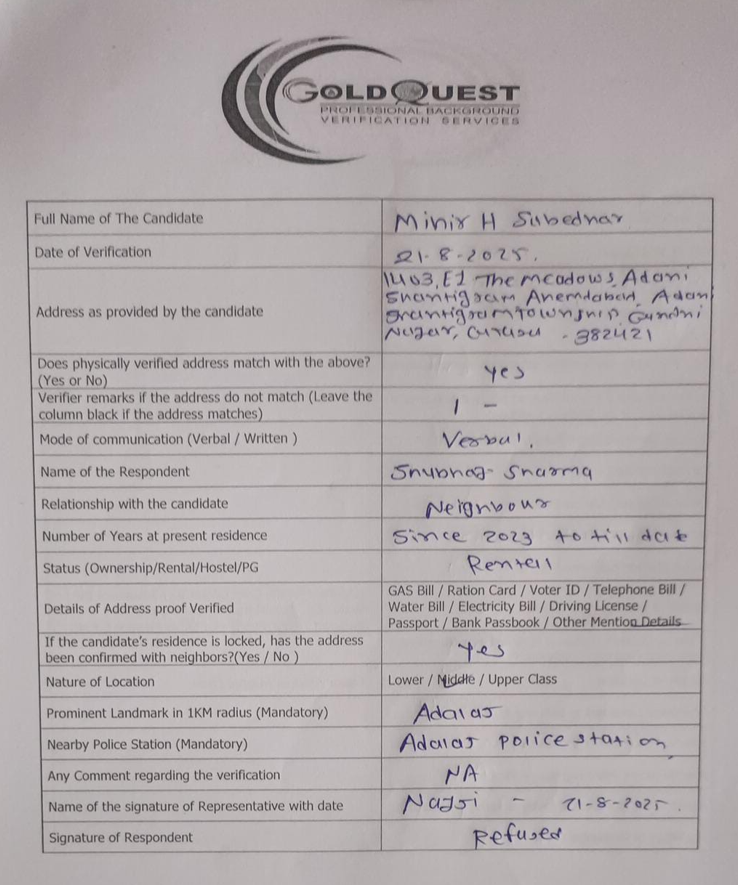 GOLDQUEST
PROFESSIONAL BACKGROUND
VERIFICATION SERVICES
Full Name of The Candidate
Minir H Subednar
Date of Verification
21-8-2025.
Address as provided by the candidate
1403, E1 The meadows, Adani
Shantigram Ahemdabad, Adani
Shantigram Township, Gandhi
Nagar, - 382421
Does physically verified address match with the above?
(Yes or No)
Yes
Verifier remarks if the address do not match (Leave the
column black if the address matches)
Mode of communication (Verbal / Written )
Verbal.
Name of the Respondent
Sharma
Relationship with the candidate
Neighbour
Number of Years at present residence
Since 2023 to till date
Status (Ownership/Rental/Hostel/PG
Rentall
Details of Address proof Verified
GAS Bill / Ration Card / Voter ID / Telephone Bill /
Water Bill / Electricity Bill / Driving License /
Passport / Bank Passbook / Other Mention Details
If the candidate's residence is locked, has the address
been confirmed with neighbors?(Yes / No )
Yes
Nature of Location
Lower / Middle / Upper Class
Prominent Landmark in 1KM radius (Mandatory)
Adalaj
Nearby Police Station (Mandatory)
Adalaj police station
Any Comment regarding the verification
NA
Name of the signature of Representative with date
- 21-8-2025.
Signature of Respondent
Refused